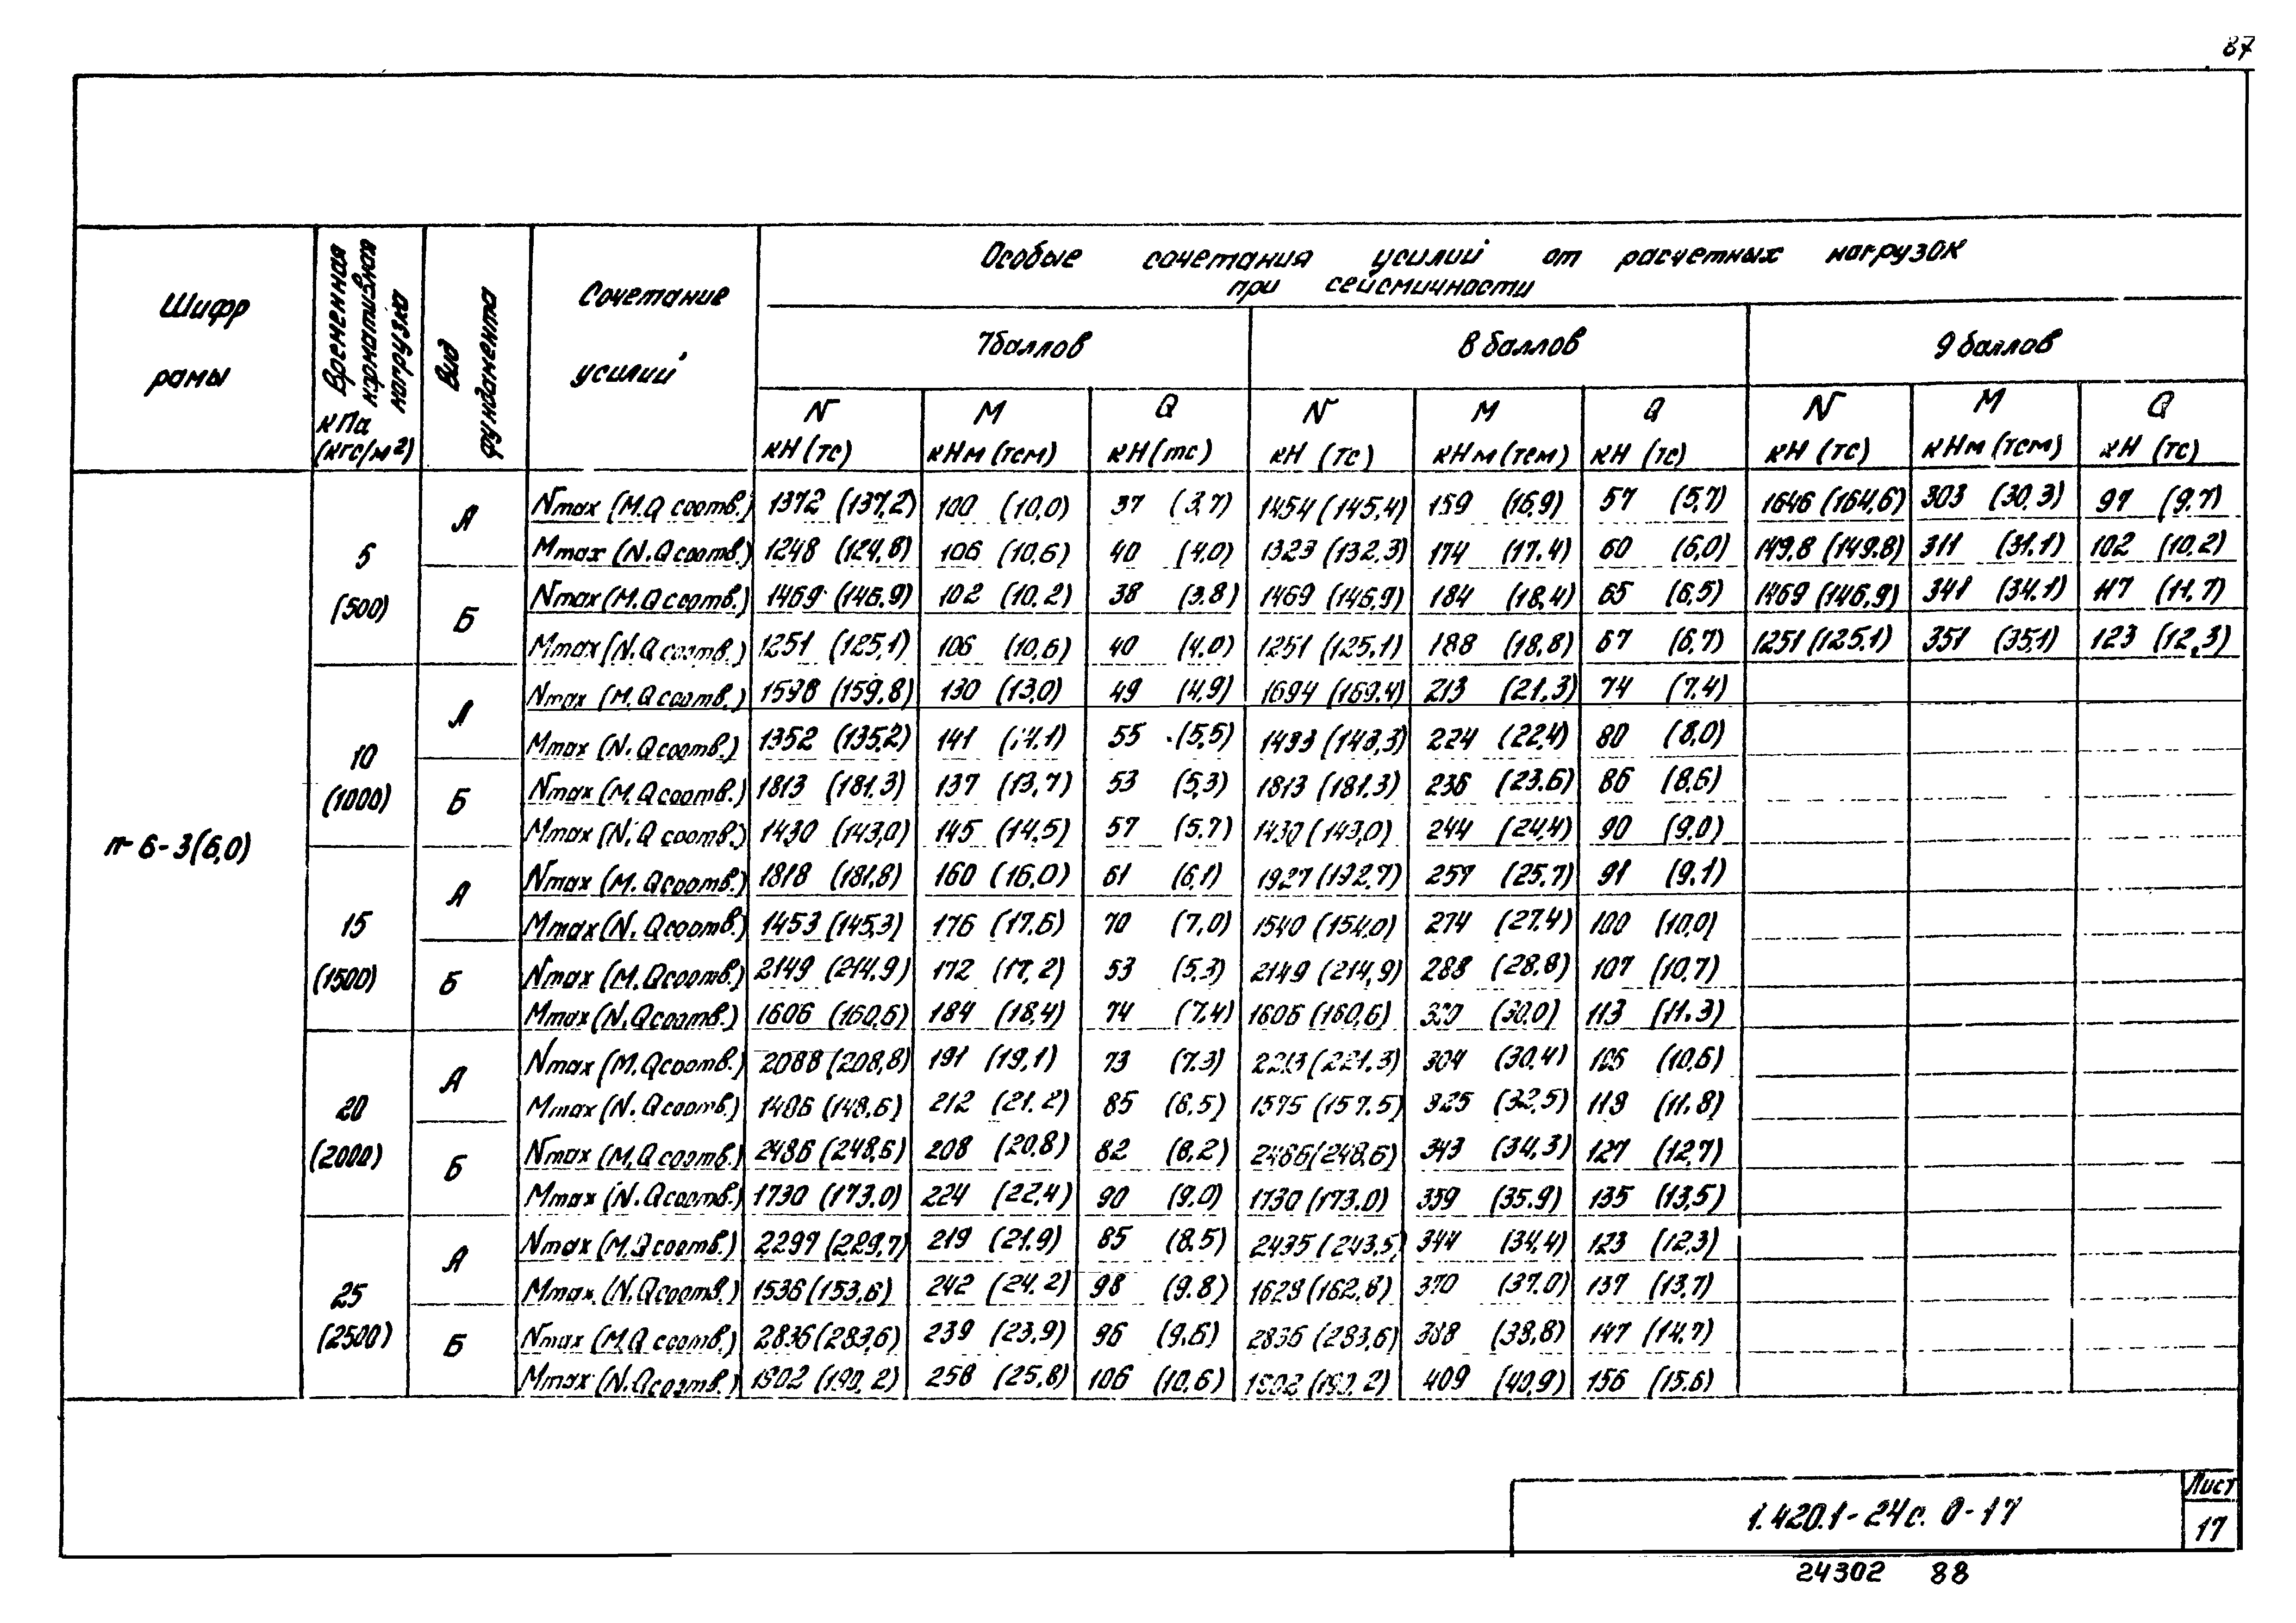 87
Шифр рамы
Временная нормативная нагрузка кПа (кгс/м²)
Вид фундамента
Сочетание усилий
Особые сочетания усилий от расчетных нагрузок
при сейсмичности
7баллов 8 баллов 9 баллов
N M Q N M Q N M Q
кН (тс) кНм (тсм) кН (тс) кН (тс) кНм (тсм) кН (тс) кН (тс) кНм (тсм) кН (тс)
п-6-3(6,0)
5 (500)
А
Nmax (M.Q соотв.) 1372 (137,2) 100 (10,0) 37 (3,7) 1454 (145,4) 159 (16,9) 57 (5,7) 1646 (164,6) 303 (30,3) 97 (9,7)
Mmax (N.Q соотв.) 1248 (124,8) 106 (10,6) 40 (4,0) 1323 (132,3) 174 (17.4) 60 (6,0) 149,8 (149.8) 311 (31.1) 102 (10,2)
Б
Nmax (M.Q соотв.) 1469 (146,9) 102 (10,2) 38 (3.8) 1469 (146,9) 184 (18,4) 65 (6,5) 1469 (146,9) 341 (34.1) 117 (11,7)
Mmax (N.Q соотв.) 1251 (125,1) 106 (10,6) 40 (4,0) 1251 (125,1) 188 (18,8) 67 (6,7) 1251 (125,1) 351 (35,1) 123 (12,3)
10 (1000)
А
Nmax (M.Q соотв.) 1598 (159,8) 130 (13,0) 49 (4,9) 1694 (169,4) 213 (21,3) 74 (7,4)
Mmax (N.Q соотв.) 1352 (135,2) 141 (14,1) 55 (5,5) 1433 (143,3) 224 (22,4) 80 (8,0)
Б
Nmax (M.Q соотв.) 1813 (181,3) 137 (13,7) 53 (5,3) 1813 (181.3) 236 (23.6) 86 (8,6)
Mmax (N.Q соотв.) 1430 (143,0) 145 (14,5) 57 (5,7) 1430 (143,0) 244 (24,4) 90 (9,0)
15 (1500)
А
Nmax (M.Q соотв.) 1818 (181,8) 160 (16,0) 61 (6,1) 1927 (192,7) 257 (25,7) 91 (9,1)
Mmax (N.Q соотв.) 1453 (145,3) 176 (17,6) 70 (7,0) 1540 (154,0) 274 (27,4) 100 (10,0)
Б
Nmax (M.Q соотв.) 2149 (214,9) 172 (17,2) 53 (5,3) 2149 (214,9) 288 (28,8) 107 (10,7)
Mmax (N.Q соотв.) 1606 (160,6) 184 (18,4) 74 (7,4) 1606 (160,6) 300 (30,0) 113 (11.3)
20 (2000)
А
Nmax (M.Q соотв.) 2088 (208,8) 191 (19,1) 73 (7.3) 2213 (221.3) 304 (30,4) 106 (10,6)
Mmax (N.Q соотв.) 1486 (148,6) 212 (21.2) 85 (8,5) 1575 (157.5) 325 (32,5) 118 (11.8)
Б
Nmax (M.Q соотв.) 2486 (248,6) 208 (20,8) 82 (8,2) 2486 (248,6) 343 (34,3) 127 (12,7)
Mmax (N.Q соотв.) 1730 (173.0) 224 (22,4) 90 (9,0) 1730 (173.0) 359 (35.9) 135 (13,5)
25 (2500)
А
Nmax (M.Q соотв.) 2297 (229,7) 219 (21.9) 85 (8.5) 2435 (243,5) 344 (34,4) 123 (12,3)
Mmax (N.Q соотв.) 1536 (153,6) 242 (24.2) 98 (9.8) 1628 (162,8) 370 (37.0) 137 (13,7)
Б
Nmax (M.Q соотв.) 2836 (283,6) 239 (23,9) 96 (9.6) 2836 (283,6) 388 (38,8) 147 (14,7)
Mmax (N.Q соотв.) 1902 (190,2) 258 (25,8) 106 (10,6) 1902 (190,2) 409 (40,9) 156 (15.6)
1.420.1-24с. 0-17
Лист
17
24302 88